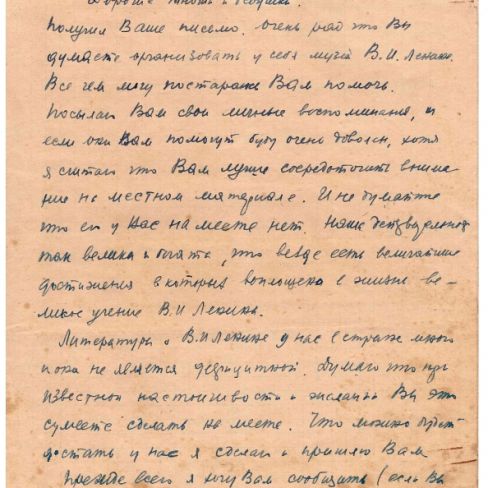 Дорогие юноши и девушки.
Получил Ваше письмо. очень рад что Вы
думаете организовать у себя музей В.И. Ленина.
Все чем могу постараюсь Вам помочь.
Посылаю Вам свои личные воспоминания, и
если они Вам помогут буду очень доволен, хотя
я считаю что Вам лучше сосредоточить внима
ние на местном материале. И не думайте
что его у Вас на месте нет. Наша действительность
так велика и богата, что везде есть величайшие
достижения в которых воплощено в жизнь ве-
ликое учение В.И Ленина.
Литература о В.И Ленине у нас в стране много
и она не является дефицитной. Думаю что при
известной настойчивости и желании Вы это
сумеете сделать на месте. Что можно будет
достать у нас я сделаю и пришлю Вам
Прежде всего я хочу Вам сообщить (если Вы